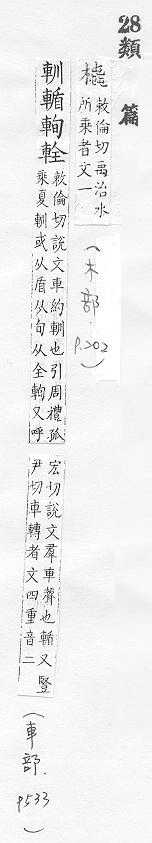 28
類篇
敕倫切禹治水
所乘者文一
(木部. P.202)
䡅輴輇
敕倫切說文車約䡅也引周禮孤
乘夏䡅或从盾从旬从全又呼
宏切說文羣車聲也輴又豎
尹切車轉者文四重音二
(車部. P533)